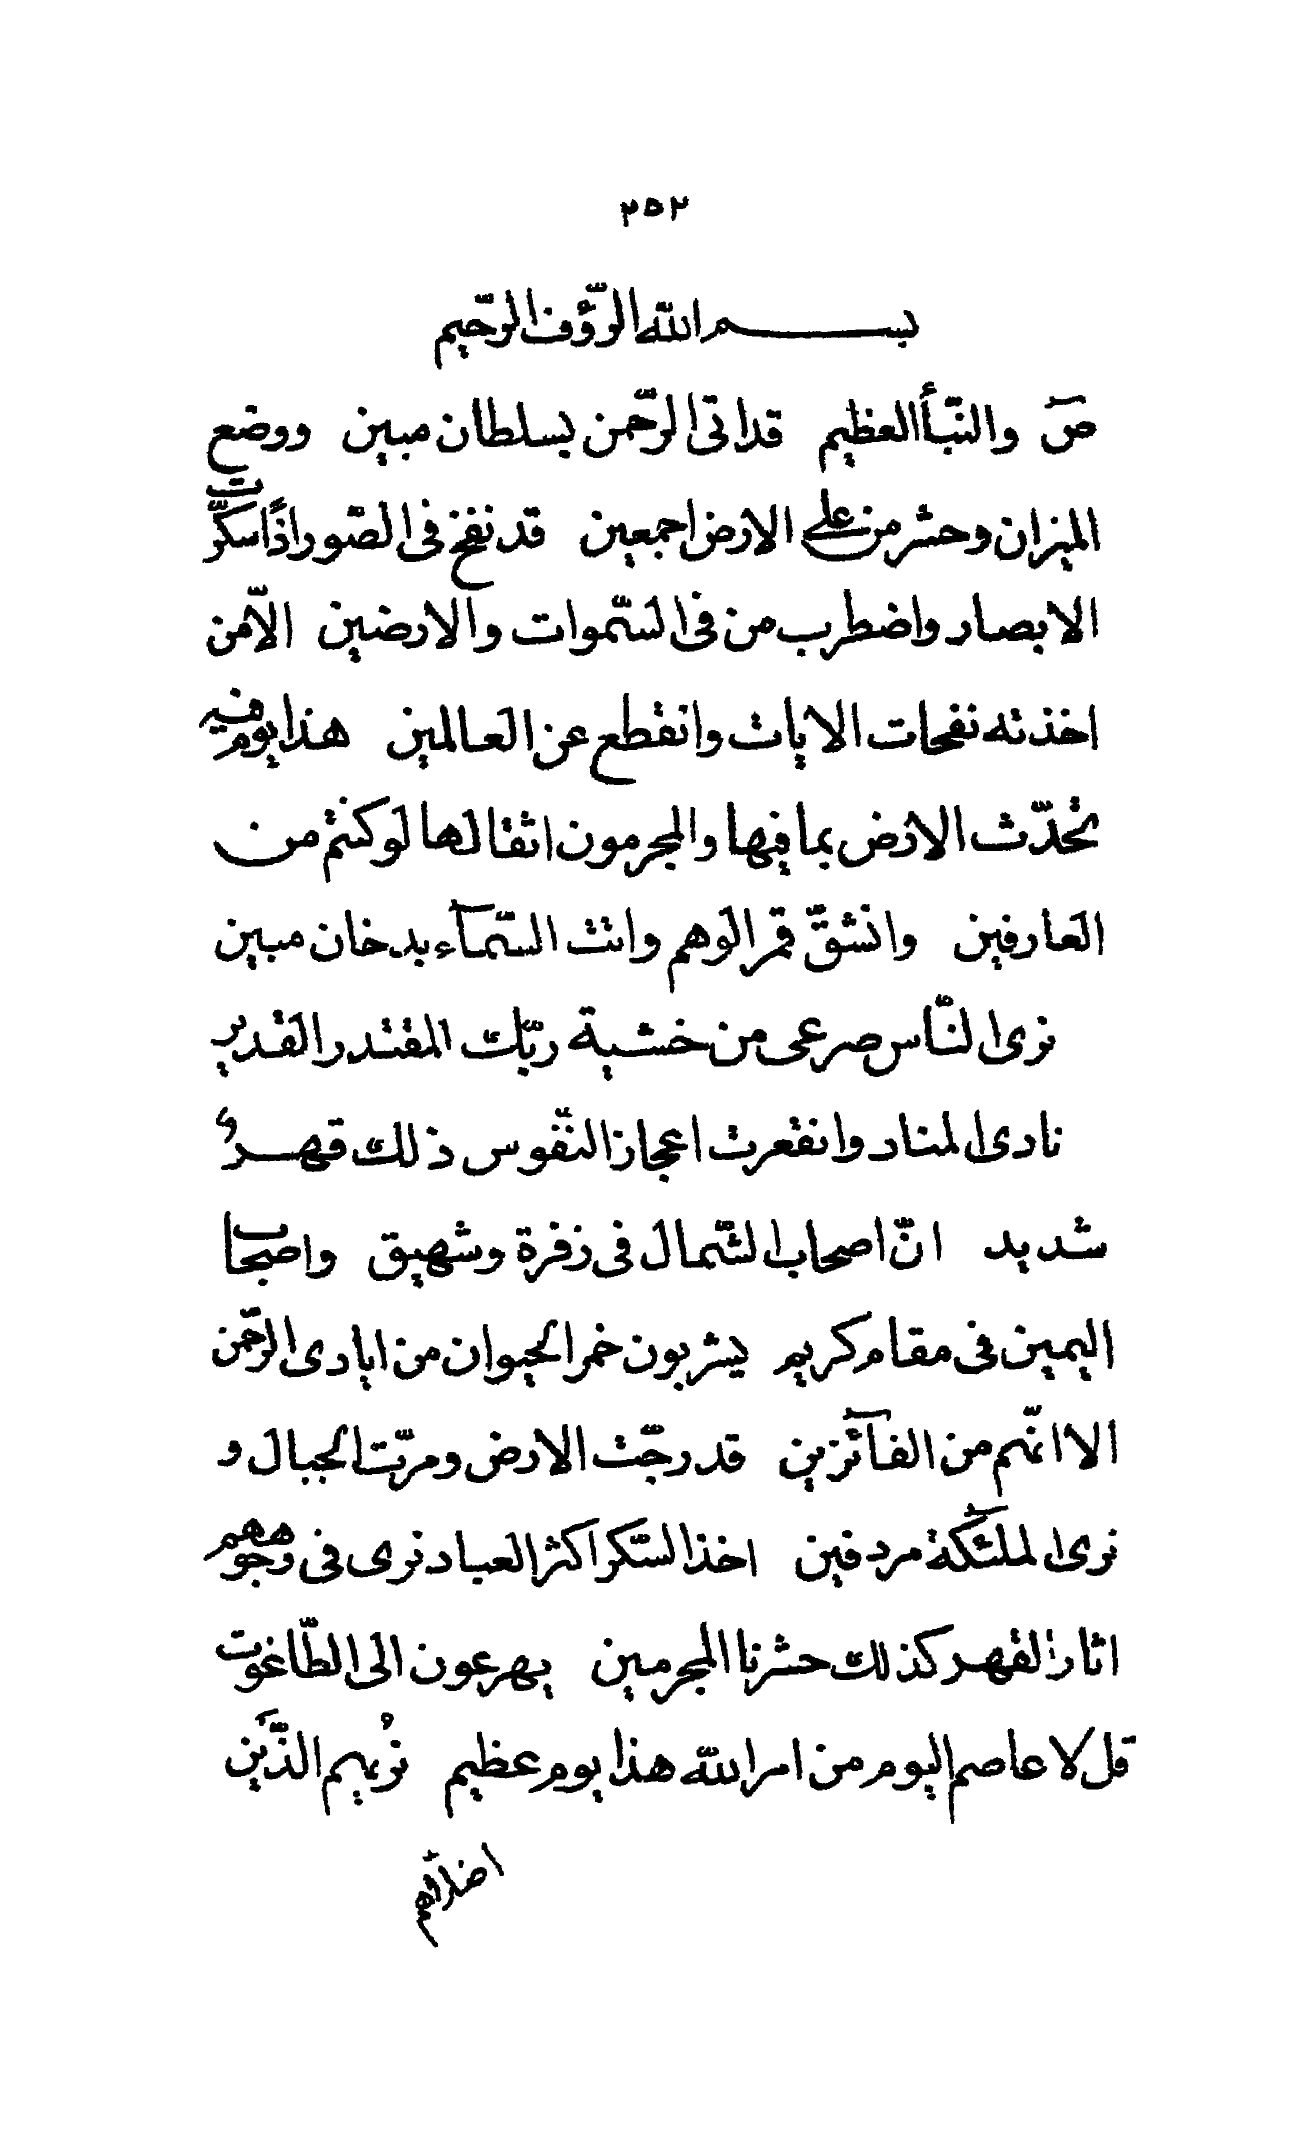 ٢٥٢
بسم الله الرّؤف الرّحیم
صٓ والنّبأ العظیم قد اتی الرّحمن بسلطان مبین ووضع
المیزان وحشر من علی الارض اجمعین قد نفخ فی الصّور اذًا سکّرت
الابصار واضطرب من فی السّموات والارضین الّا من
اخذته نفحات الایات وانقطع عن العالمین هذا یوم فیه
تحدّث الارض بما فیها والمجرمون اثقالها لو کنتم من
العارفین وانشقّ قمر الوهم واتت السّمآء بدخان مبین
نری النّاس صرعی من خشیة ربّک المقتدر القدیر
نادی المناد وانقعرت اعجاز النّفوس ذلک قهرٌ
شدید انّ اصحاب الشّمال فی زفرة وشهیق واصحاب
الیمین فی مقام کریم یشربون خمر الحیوان من ایادی الرّحمن
الا انّهم من الفآئزین قد رجّت الارض ومرّت الجبال و
نری الملٓئکة مردفین اخذ السّکر اکثر العباد نری فی وجوههم
اثار القهر کذلک حشرنا المجرمین یهرعون الی الطّاغوت
قل لا عاصم الیوم من امر الله هذا یوم عظیم نُریهم الذَّین
اضلّاهم